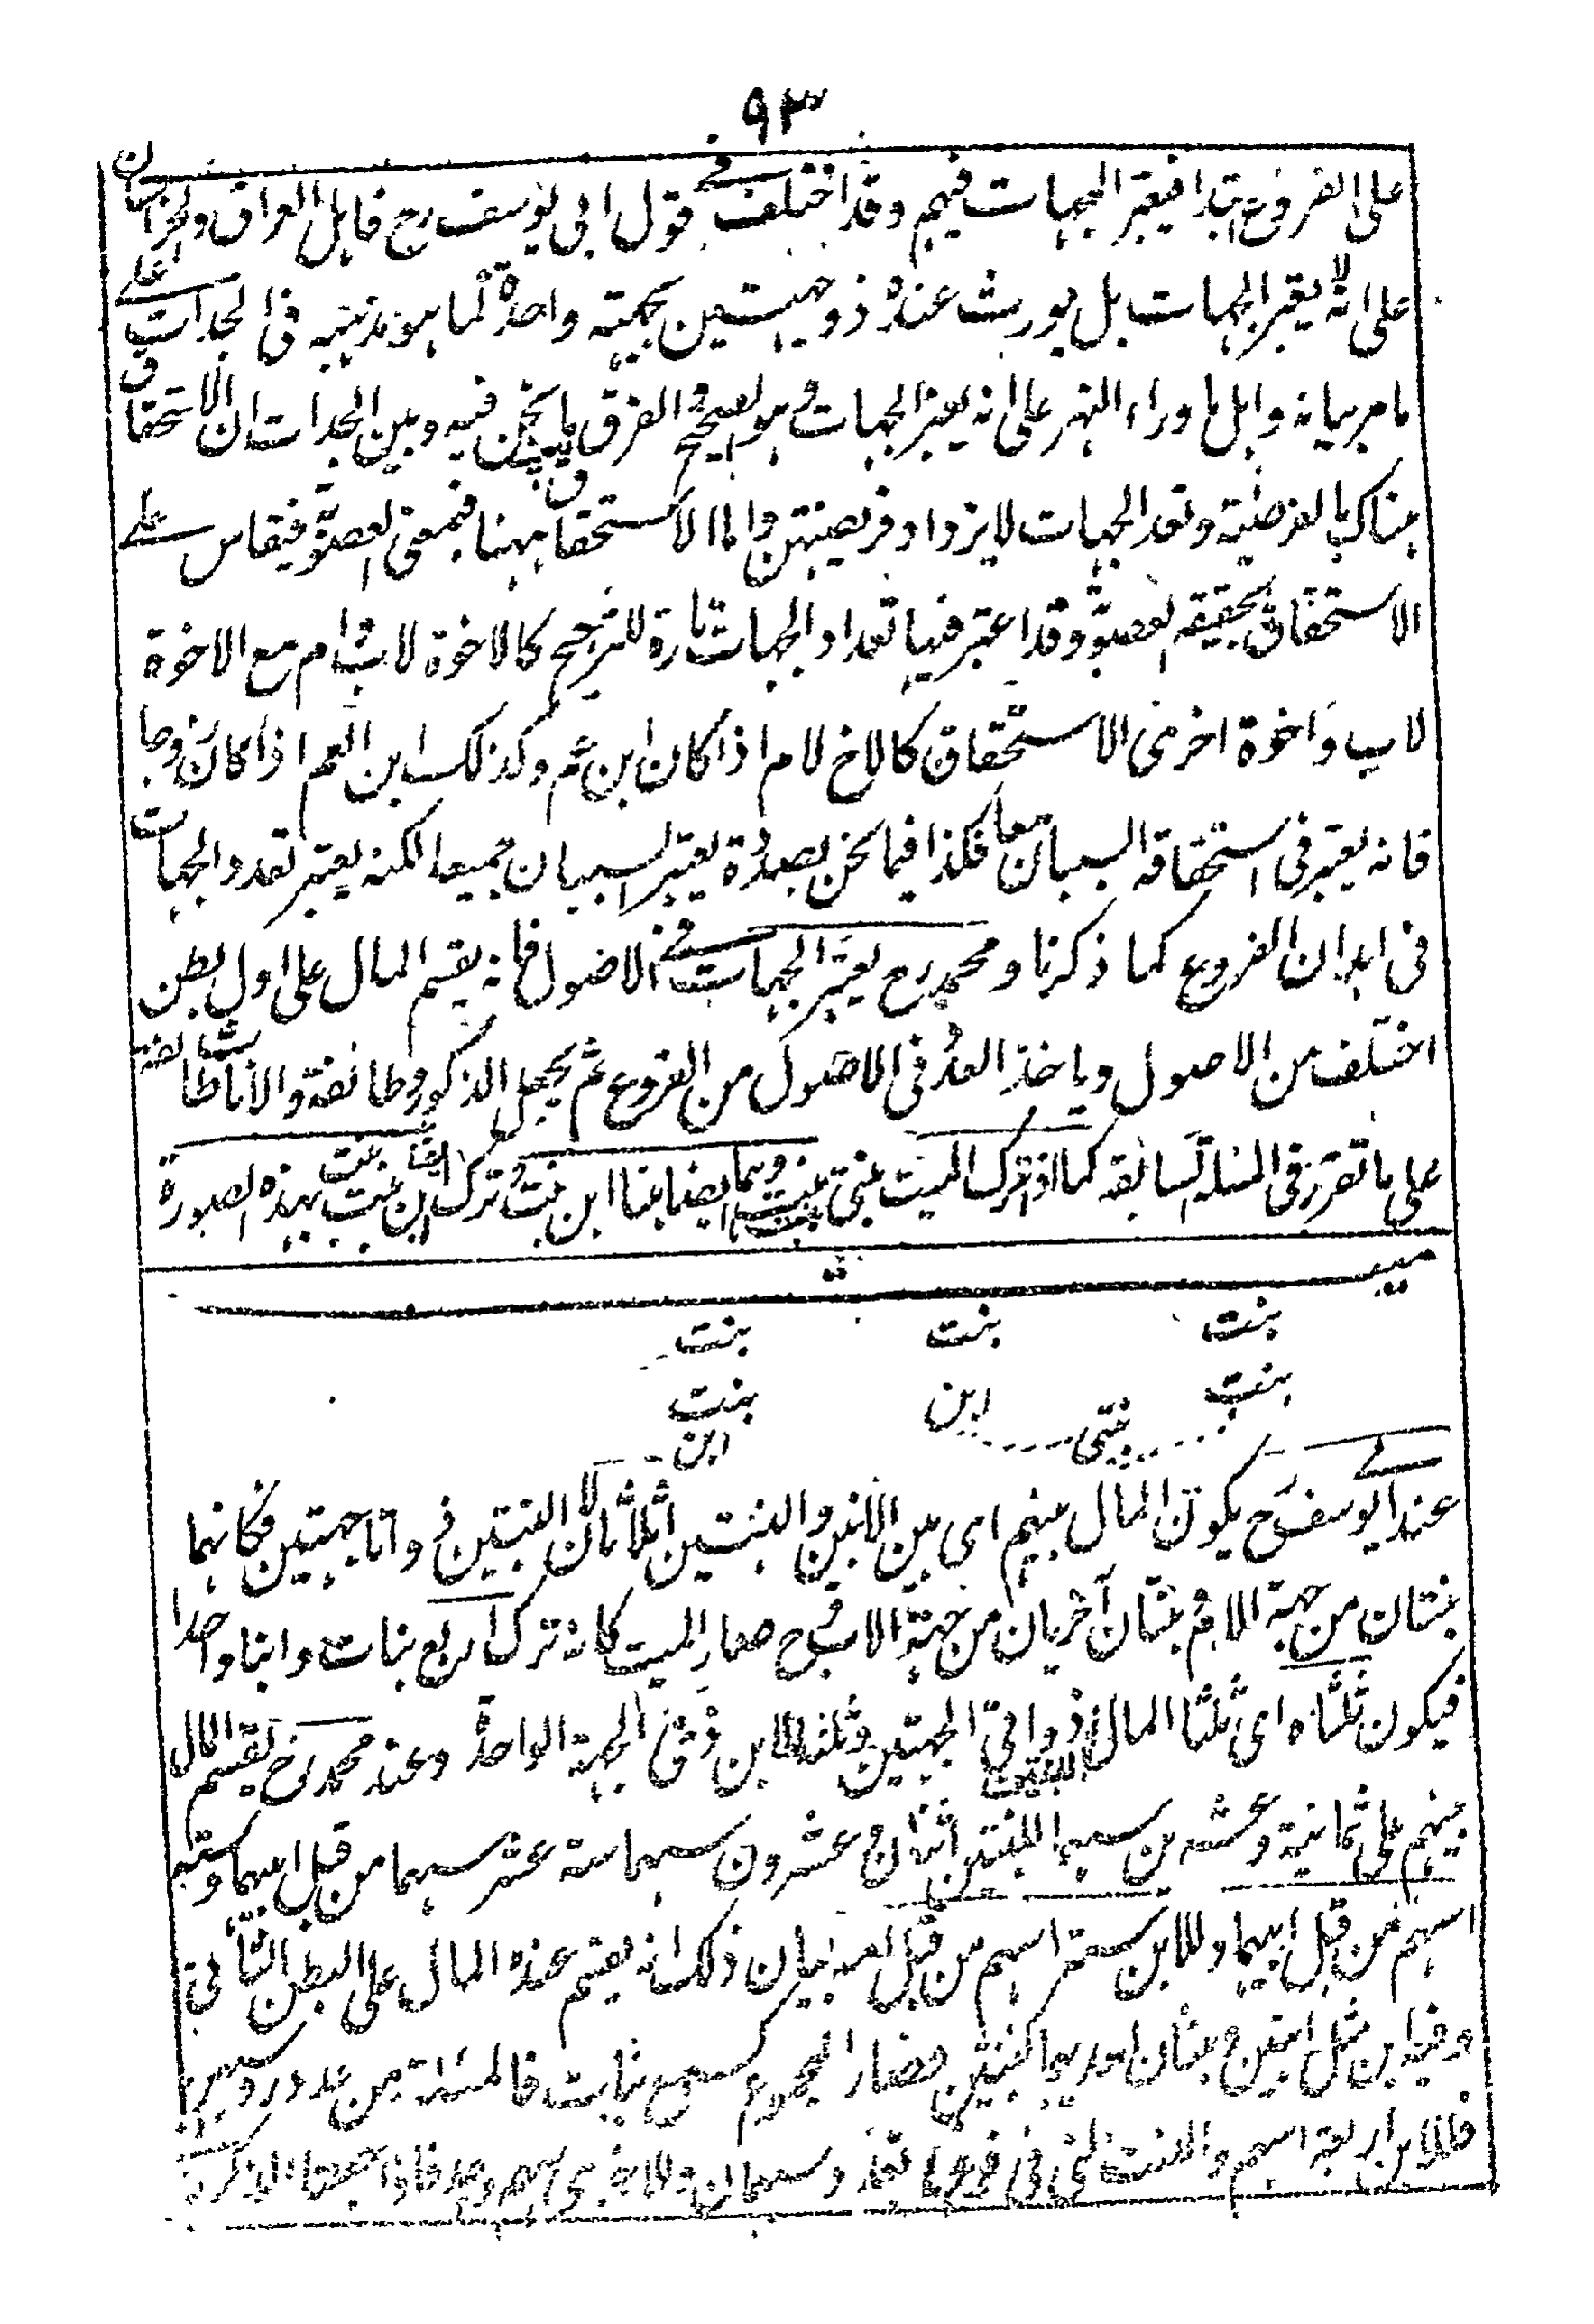 ٩٣
على الفروع ابتداء فيعتبر الجهات فيهم وقد اختلف في قول ابي يوسف رح فاهل العراق وخراسان
على انه لا يعتبر الجهات بل يورث عنده ذو جهتين بجهته واحدة كما هو مذهبه في الجدات على
ما مر بيانه واهل ما وراء النهر على انه يعتبر الجهات وهو الصحيح والفرق بين ما نحن فيه وبين الجدات ان الاستحقاق
هناك بالفرضية وتعدد الجهات لا يزداد فريضتهن واما الاستحقاق ههنا فبمعنى العصوبة فيقاس على
الاستحقاق بحقيقة العصوبة وقد اعتبر فيها تعداد الجهات تارة للترجيح كالاخوة لاب وام مع الاخوة
لاب واخرى في الاستحقاق كالاخ لام اذا كان ابن عم وكذلك ابن العم اذا كان زوجا
فانه يعتبر في استحقاقه السببان معا فكذا فيما نحن بصدده يعتبر السببان جميعا لكنه يعتبر تعدد الجهات
في ابدان الفروع كما ذكرنا ومحمد رح يعتبر الجهات في الاصول فانه يقسم المال على اول بطن
اختلف من الاصول وياخذ العدد في الاصول من الفروع ثم يجعل الذكور طائفة والاناث طائفة
على ما تقرر في المسئلة السابقة كما اذا ترك الميت بنتي بنت بنت وهما ايضا بنتا ابن بنت وترك ايضا ابن بنت بنت بهذه الصورة
ميـــــــــت
بنت بنت بنت
بنت ابن بنت
بنتي ابن
عند ابي يوسف رح يكون المال بينهم اى بين الابن والبنتين اثلاثا لان البنتين ذواتا جهتين فكانهما
بنتان من جهة الام وبنتان اخريان من جهة الاب فح صار الميت كانه ترك اربع بنات وابنا واحدا
فيكون ثلثاه اى ثلثا المال للبنتين ذواتي الجهتين وثلثه للابن ذي الجهة الواحدة وعند محمد رح يقسم المال
بينهم على ثمانية وعشرين سهما للبنتين اثنان وعشرون سهما ستة عشر سهما من قبل ابيهما وستة
اسهم من قبل امهما وللابن ستة اسهم من قبل امه بيان ذلك انه يقسم عنده المال على البطن الثاني
وفيه ابن مثل ابنين وبنتان احدهما كبنتين فصار المجموع كسبع بنات فالمسئلة من عدد رؤسهم
فللابن اربعة اسهم وللبنت التي في فروعها تعدد سهمان وللاخرى سهم واحد فاذا جعلنا الذكر